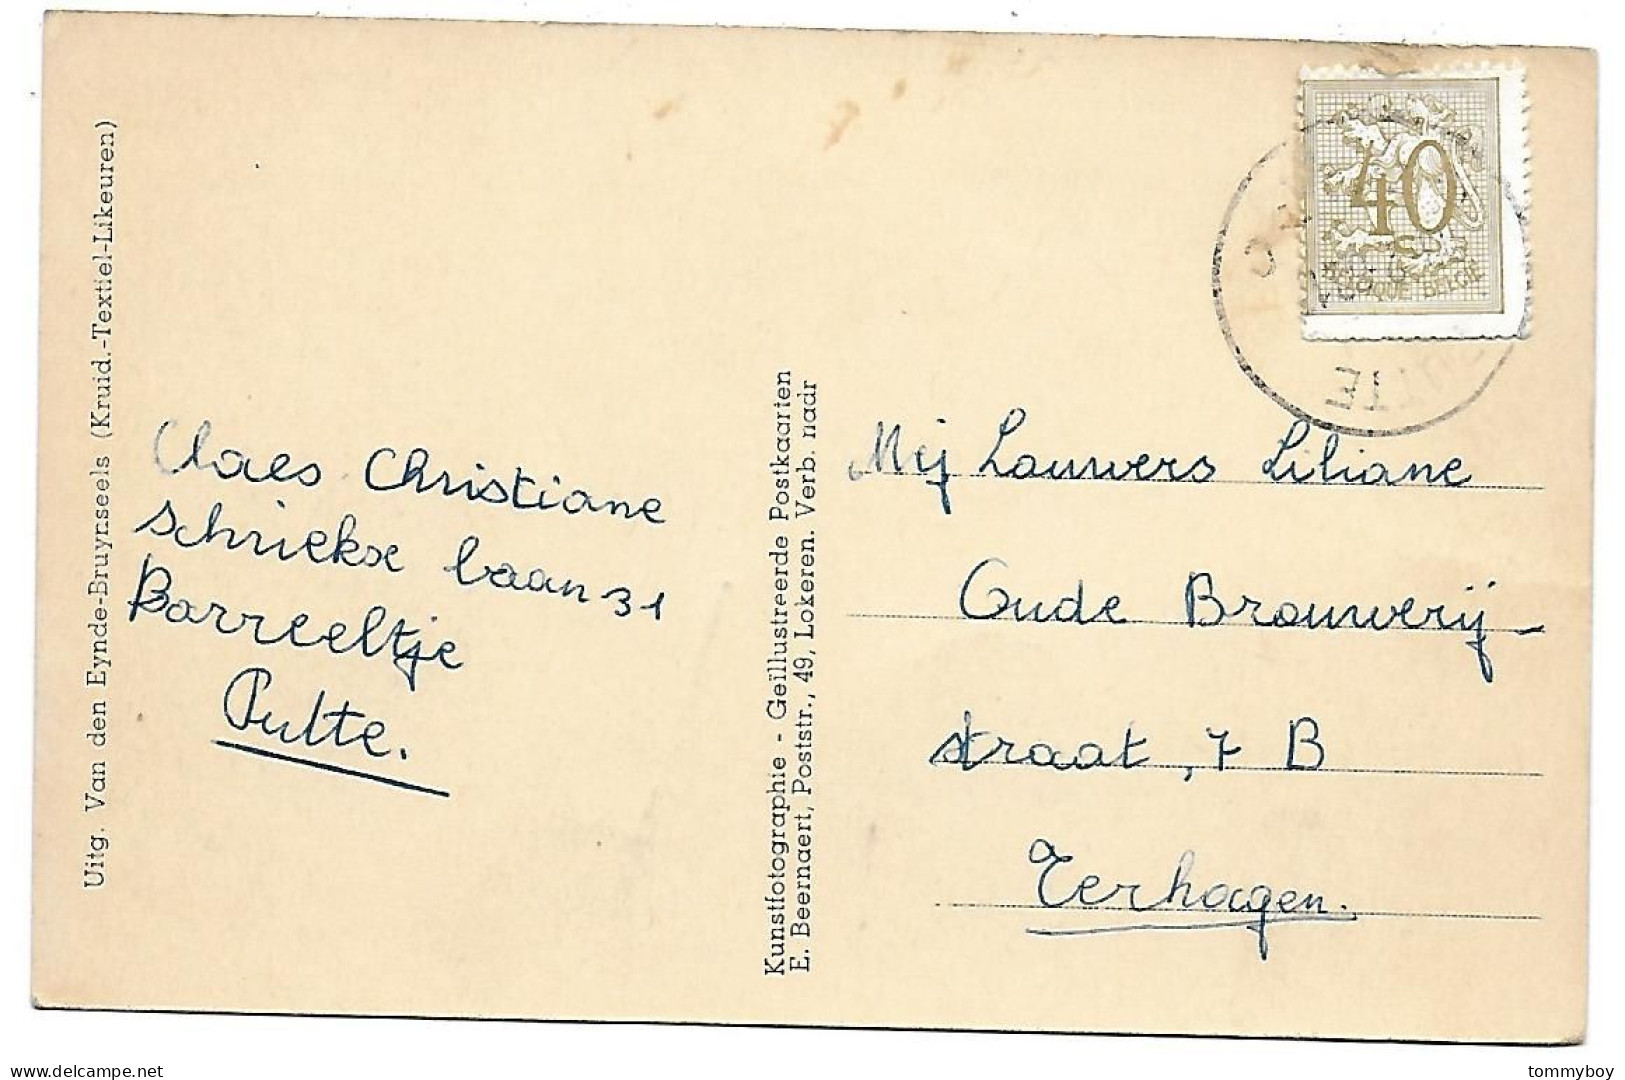 Uitg. Van den Eynde-Bruynseels (Kruid.-Textiel-Likeuren)
Claes Christiane
Schriekse baan 31
Barreeltje
Putte.
Kunstfotographie - Geïllustreerde Postkaarten
E. Beernaert, Poststr., 49, Lokeren. Verb. nadr
40
BELGIQUE BELGIË
PUTTE
Mej Lauwers Liliane
Oude Brouwerij-
straat, 7 B
Terhagen.
delcampe.net
tommyboy